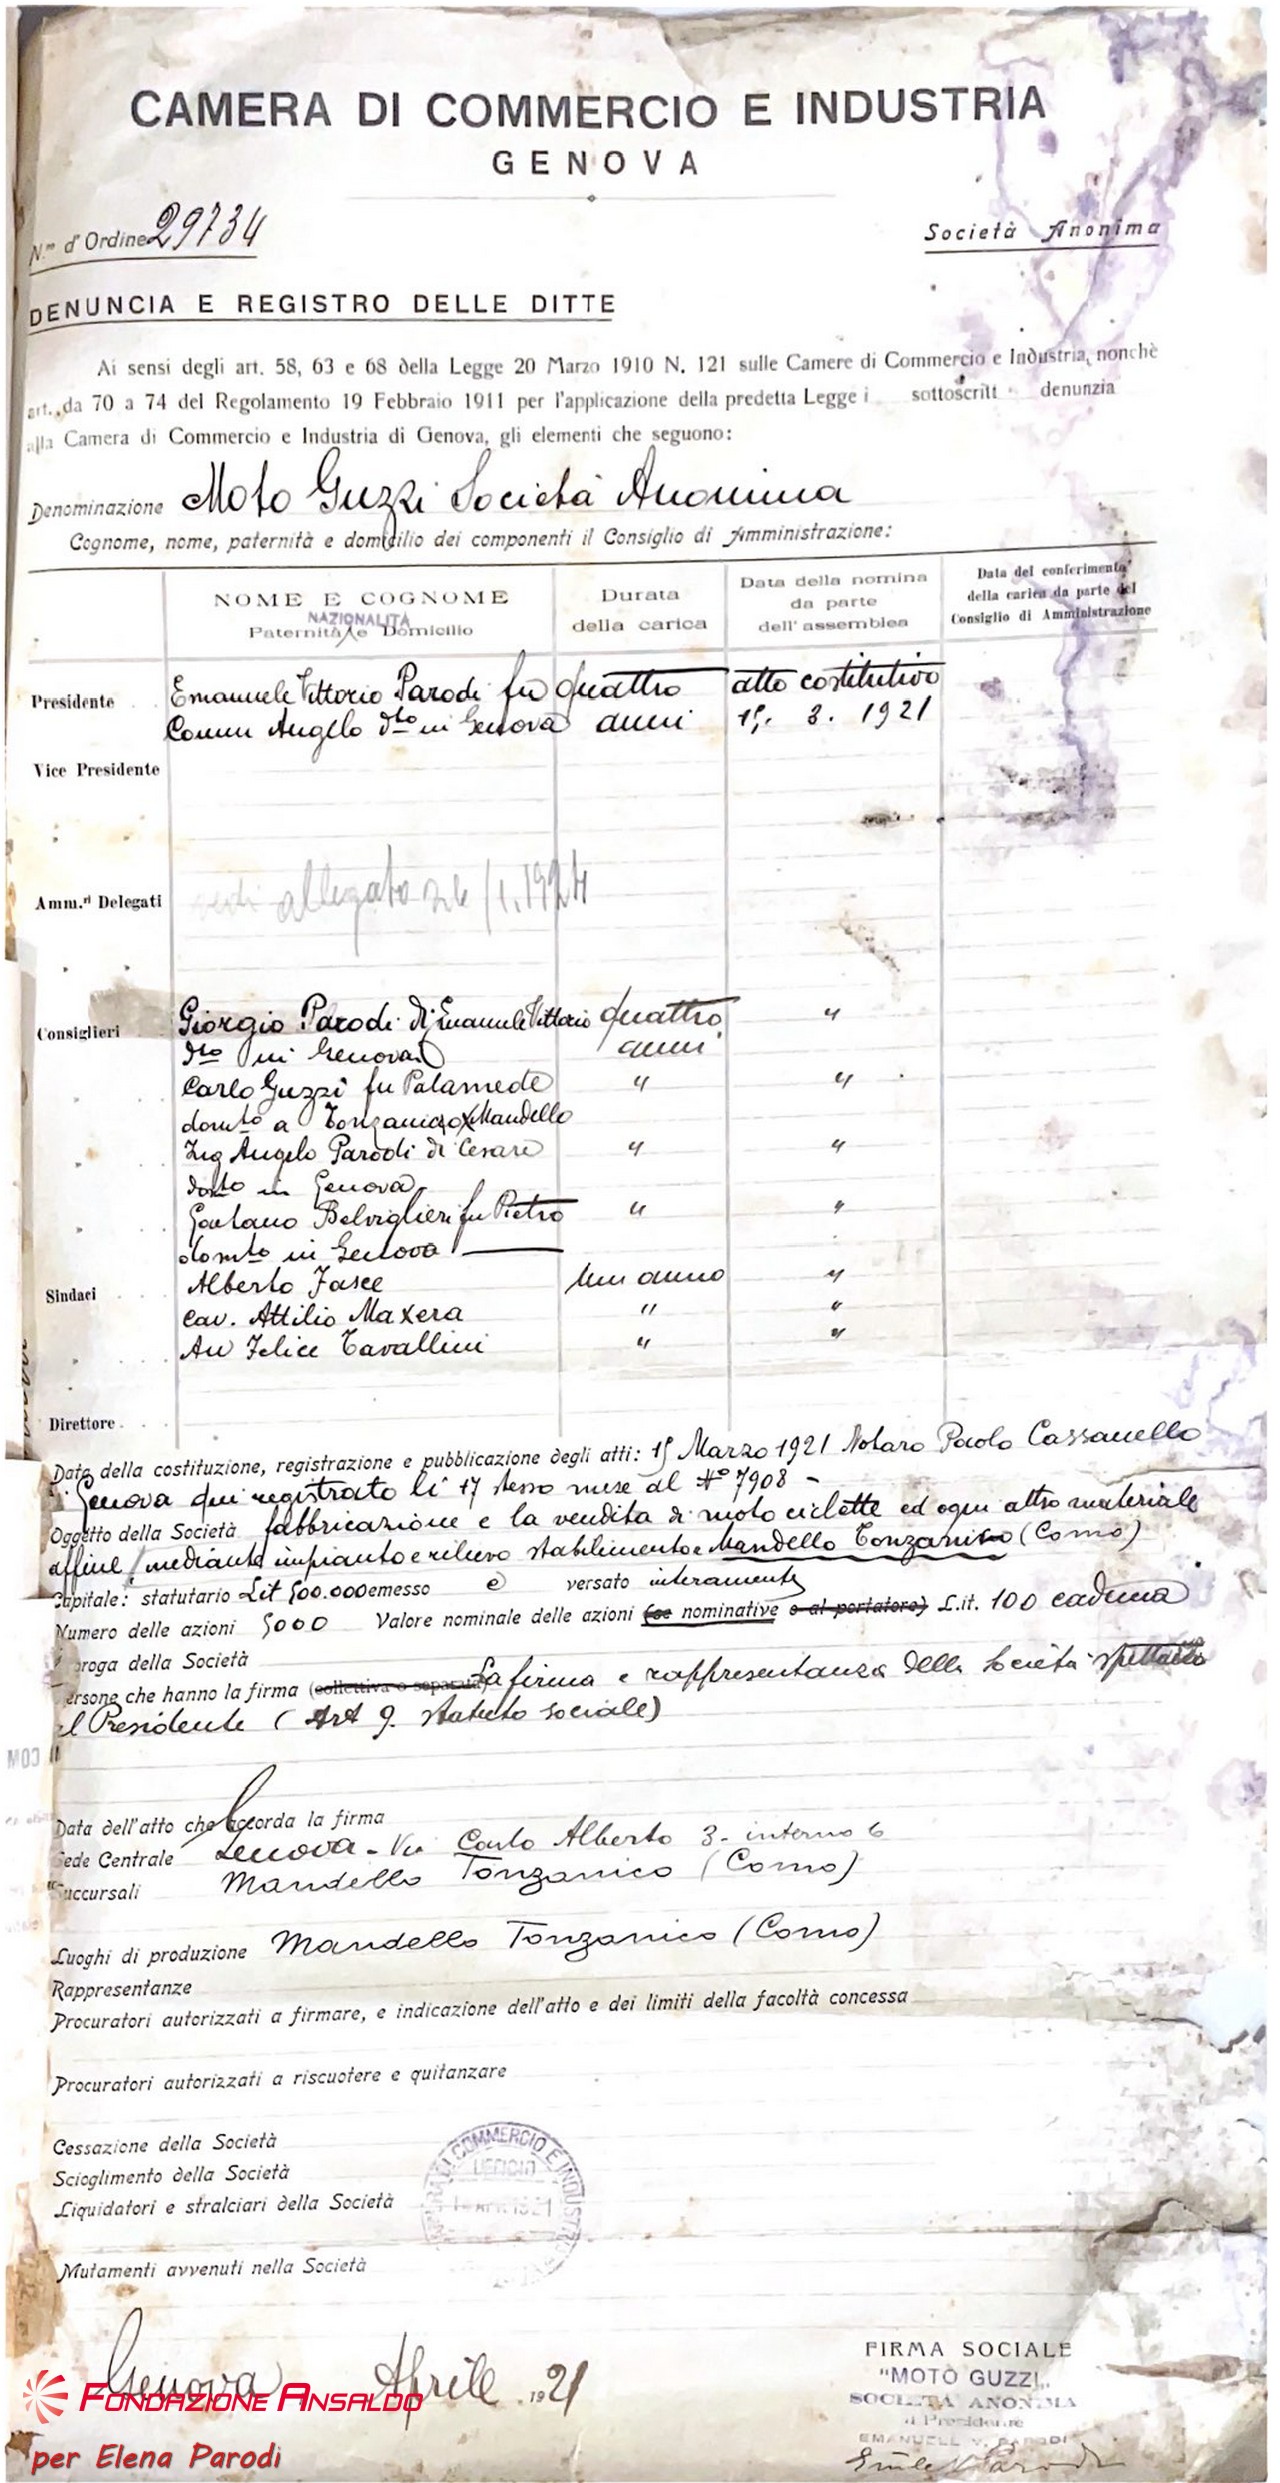 CAMERA DI COMMERCIO E INDUSTRIA
GENOVA
N.ro d'Ordine 29734
Società Anonima
DENUNCIA E REGISTRO DELLE DITTE
Ai sensi degli art. 58, 63 e 68 della Legge 20 Marzo 1910 N. 121 sulle Camere di Commercio e Industria, nonchè
art. da 70 a 74 del Regolamento 19 Febbraio 1911 per l'applicazione della predetta Legge i sottoscritt denunzia
alla Camera di Commercio e Industria di Genova, gli elementi che seguono:
Denominazione Moto Guzzi Società Anonima
Cognome, nome, paternità e domicilio dei componenti il Consiglio di Amministrazione:
NOME E COGNOME
NAZIONALITÀ
Paternità e Domicilio
Durata
della carica
Data della nomina
da parte
dell'assemblea
Data del conferimento
della carica da parte del
Consiglio di Amministrazione
Presidente Emanuele Vittorio Parodi fu quattro atto costitutivo
Comm Angelo dto in Genova anni 15. 3. 1921
Vice Presidente
Amm.ri Delegati vedi allegato 26/1.1924
Consiglieri Giorgio Parodi di Emanuele Vittorio quattro "
dto in Genova anni
Carlo Guzzi fu Palamede " "
domto a Tonzanico Mandello
Ing Angelo Parodi di Cesare " "
domto in Genova
Gaetano Belviglieri fu Pietro " "
domto in Genova
Sindaci Alberto Fasce un anno "
cav. Attilio Maxera " "
Av Felice Cavallini " "
Direttore
Data della costituzione, registrazione e pubblicazione degli atti: 15 Marzo 1921 Notaro Paolo Cassanello
Genova qui registrato li 17 stesso mese al No 7908 –
Oggetto della Società fabbricazione e la vendita di moto ciclette ed ogni altro materiale
affine mediante impianto e rilievo stabilimento e Mandello Tonzanico (Como)
Capitale: statutario Lit 500.000 emesso e versato interamente
Numero delle azioni 5000 Valore nominale delle azioni (se nominative o al portatore) L.it. 100 caduna
Proroga della Società
Persone che hanno la firma (collettiva o separata) La firma e rappresentanza della Società spettano
al Presidente (Art 9. statuto sociale)
Data dell'atto che accorda la firma
Sede Centrale Genova - Via Carlo Alberto 3 - interno 6
Succursali Mandello Tonzanico (Como)
Luoghi di produzione Mandello Tonzanico (Como)
Rappresentanze
Procuratori autorizzati a firmare, e indicazione dell'atto e dei limiti della facoltà concessa
Procuratori autorizzati a riscuotere e quitanzare
Cessazione della Società
Scioglimento della Società
Liquidatori e stralciari della Società
COMMERCIO E INDUSTRIA
UFFICIO
APR. 1921
Mutamenti avvenuti nella Società
Genova Aprile 1921
FIRMA SOCIALE
"MOTO GUZZI"
SOCIETÀ ANONIMA
il Presidente
EMANUELE V. PARODI
Em.le V Parodi
FONDAZIONE ANSALDO
per Elena Parodi